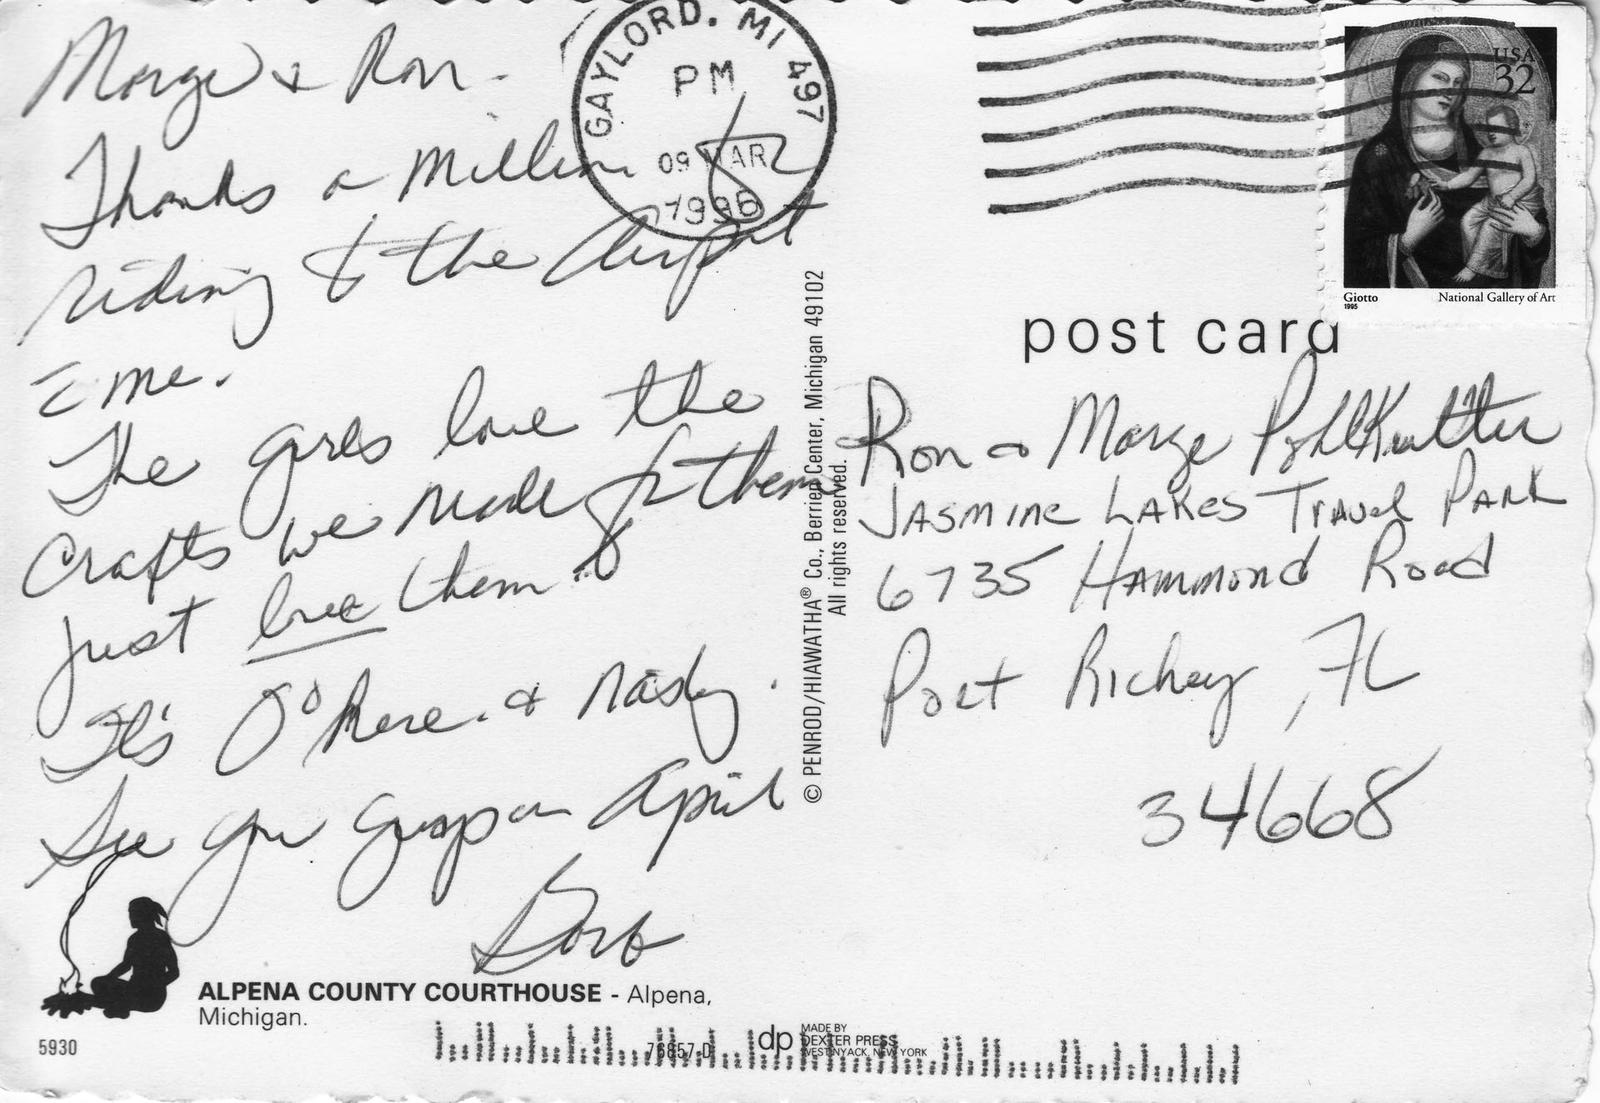 Marge & Ron.
Thanks a Million for
riding to the Airport
c̄ me.
The girls love the
crafts we made for them
just love them
It's 0° here. & nasty.
See you guys on April
Barb
ALPENA COUNTY COURTHOUSE - Alpena,
Michigan.
5930
76857-D
dp MADE BY
DEXTER PRESS
WEST NYACK, NEW YORK
© PENROD/HIAWATHA® Co., Berrien Center, Michigan 49102
All rights reserved.
GAYLORD, MI 497
PM
09 MAR
1996
USA
32
Giotto
1995
National Gallery of Art
post card
Ron & Marge PohlKutter
JASMINE LAKES TRAVEL PARK
6735 HAMMOND Road
Port Richey, FL
34668